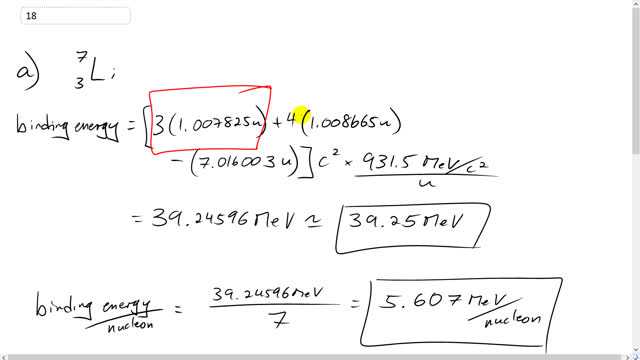 18
a) ⁷₃Li
binding energy = [3(1.007825u) + 4(1.008665u)
- (7.016003u)] c² × 931.5 MeV/c² / u
= 39.24596 MeV ≃ 39.25 MeV
binding energy / nucleon = 39.24596 MeV / 7 = 5.607 MeV / nucleon